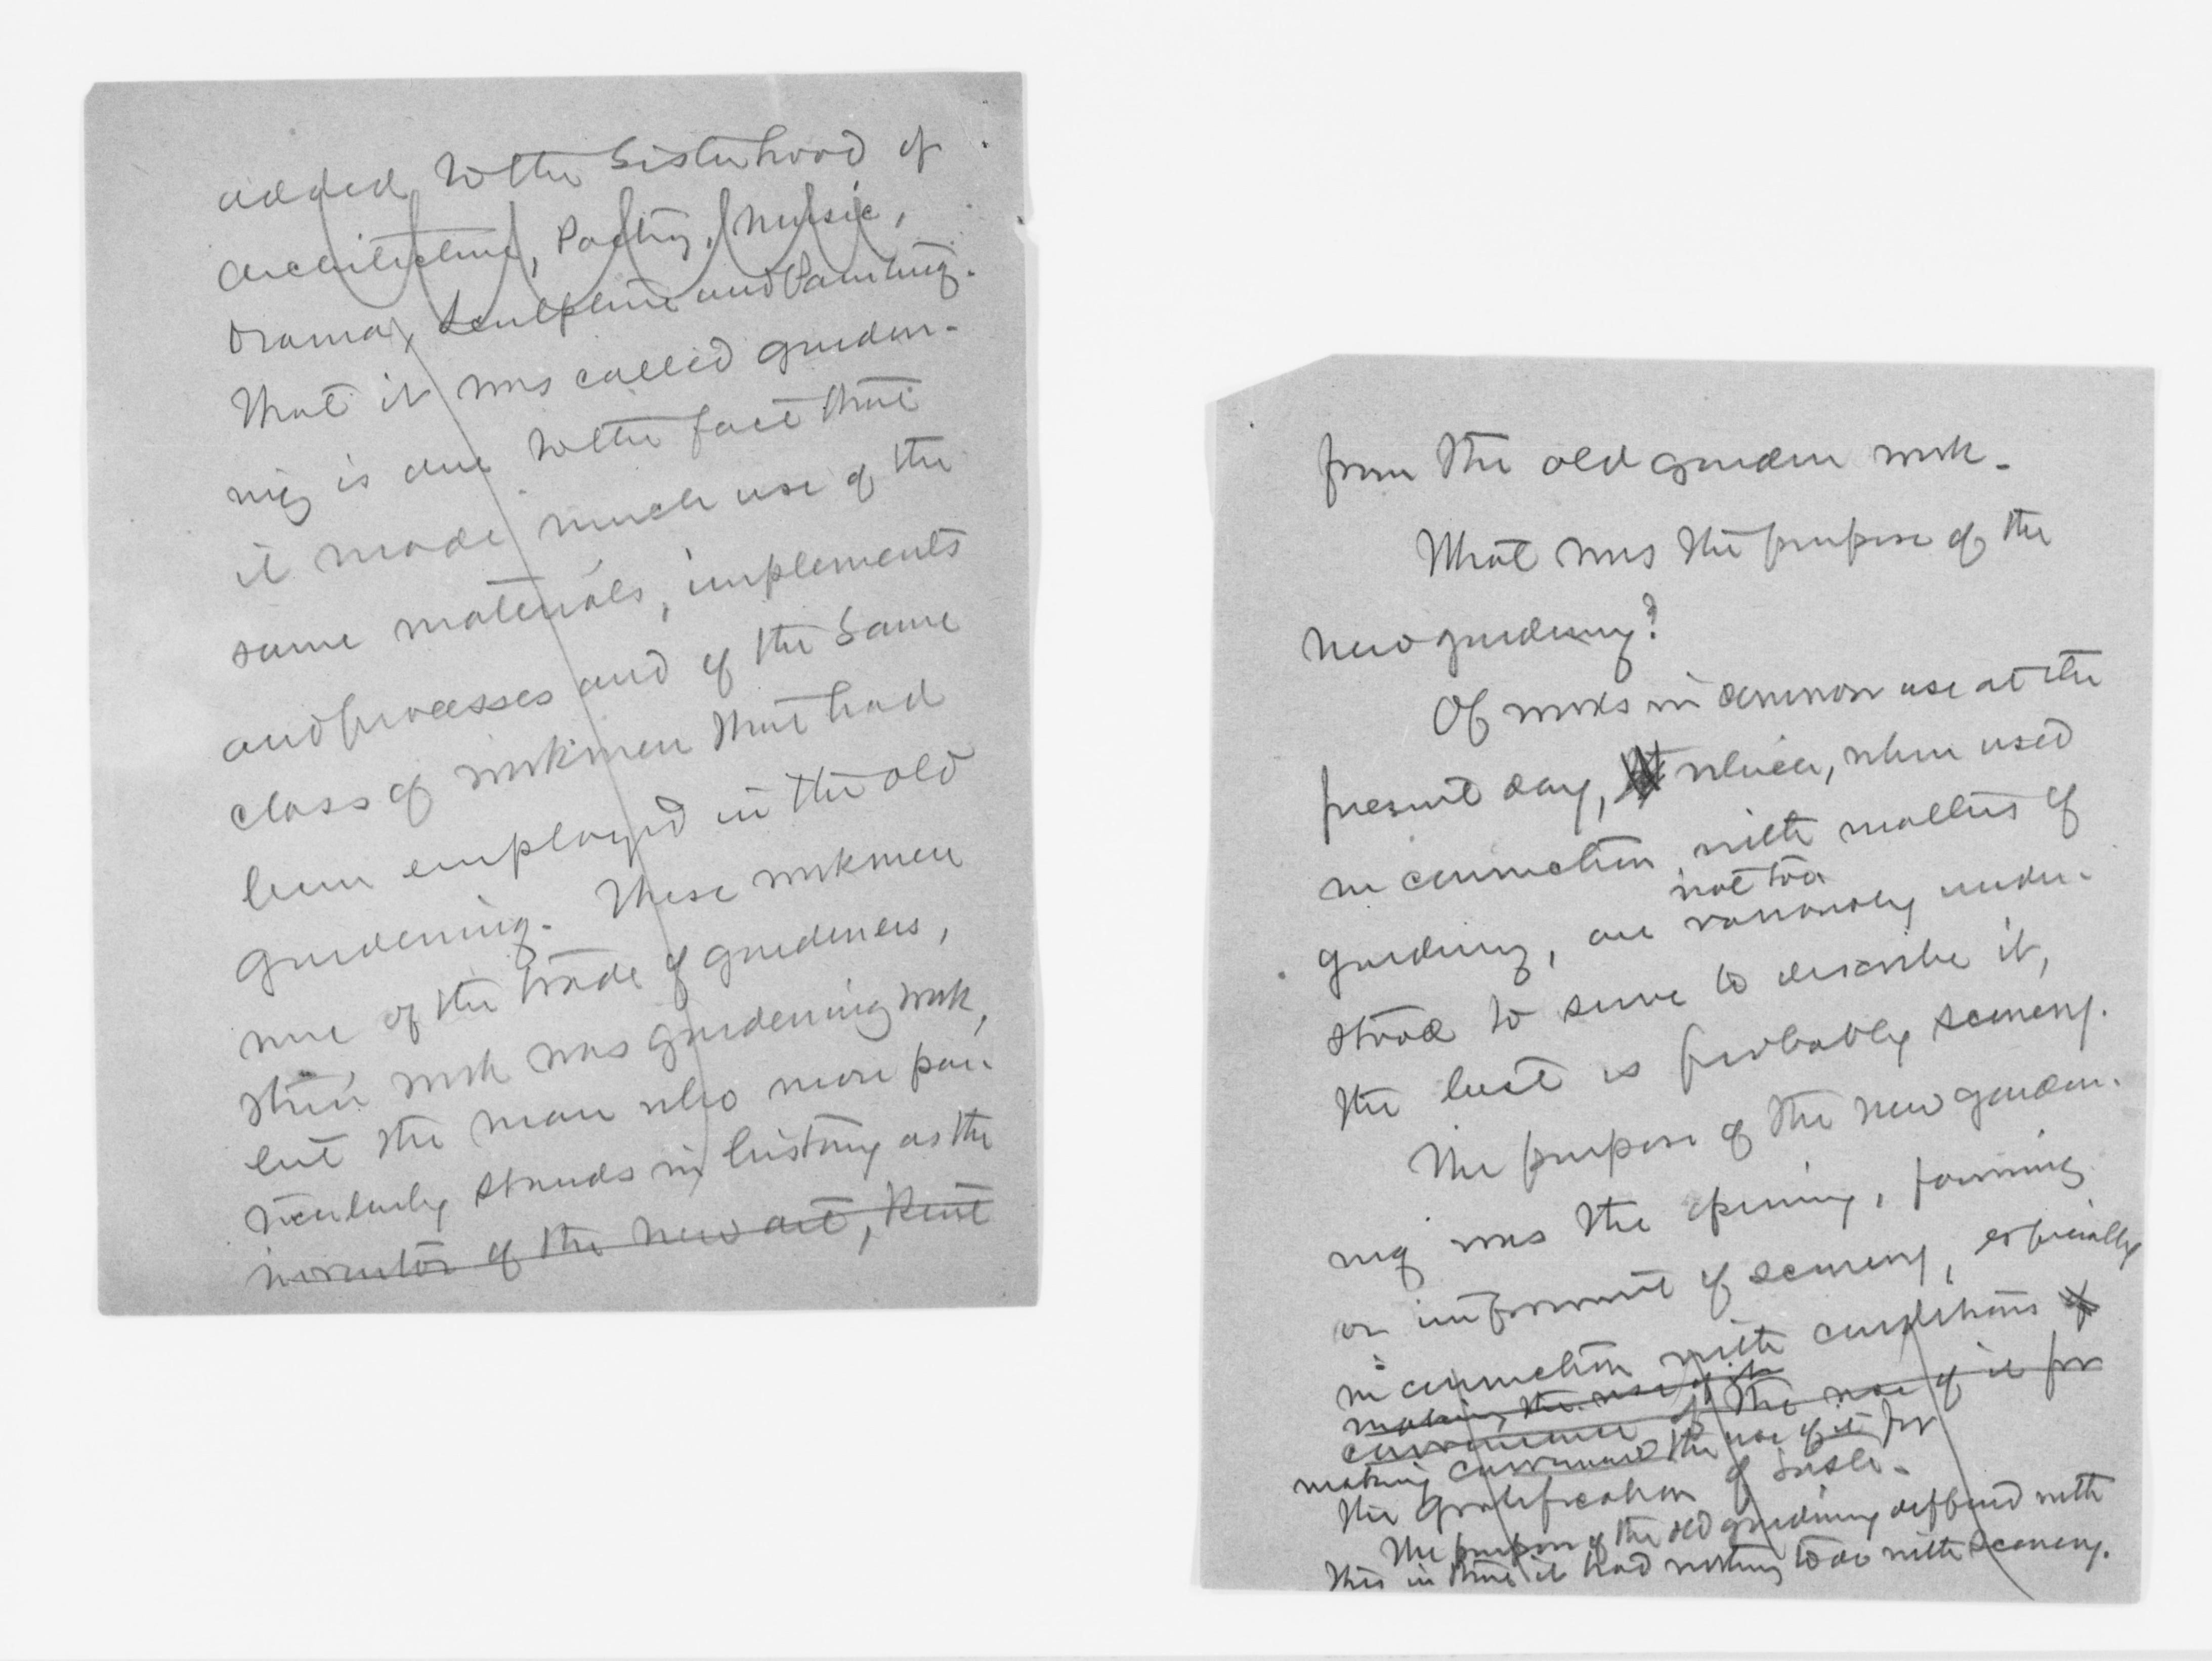 added to the Sisterhood of
Architecture, Poetry, Music,
Drama, Sculpture and Painting.
That it was called garden-
ing is due to the fact that
it made much use of the
same materials, implements
and processes and of the same
class of workmen that had
been employed in the old
gardening. These workmen
were of the trade of gardeners,
their work was gardening work,
but the man who more par-
ticularly stands in history as the
inventor of the new art, Kent
from the old garden work.
What was the purpose of the
new gardening?
Of words in common use at the
present day, which, when used
in connection with matters of
not too
gardening, are variously under-
stood to serve to describe it,
the best is probably scenery.
The purpose of the new garden-
ing was the opening, forming
or improvement of scenery, especially
in connection with conditions of
making the use of it
convenience of the use of it for
making convenient the use of it for
the gratification of taste.
The purpose of the old gardening differed with
this in that it had nothing to do with scenery.